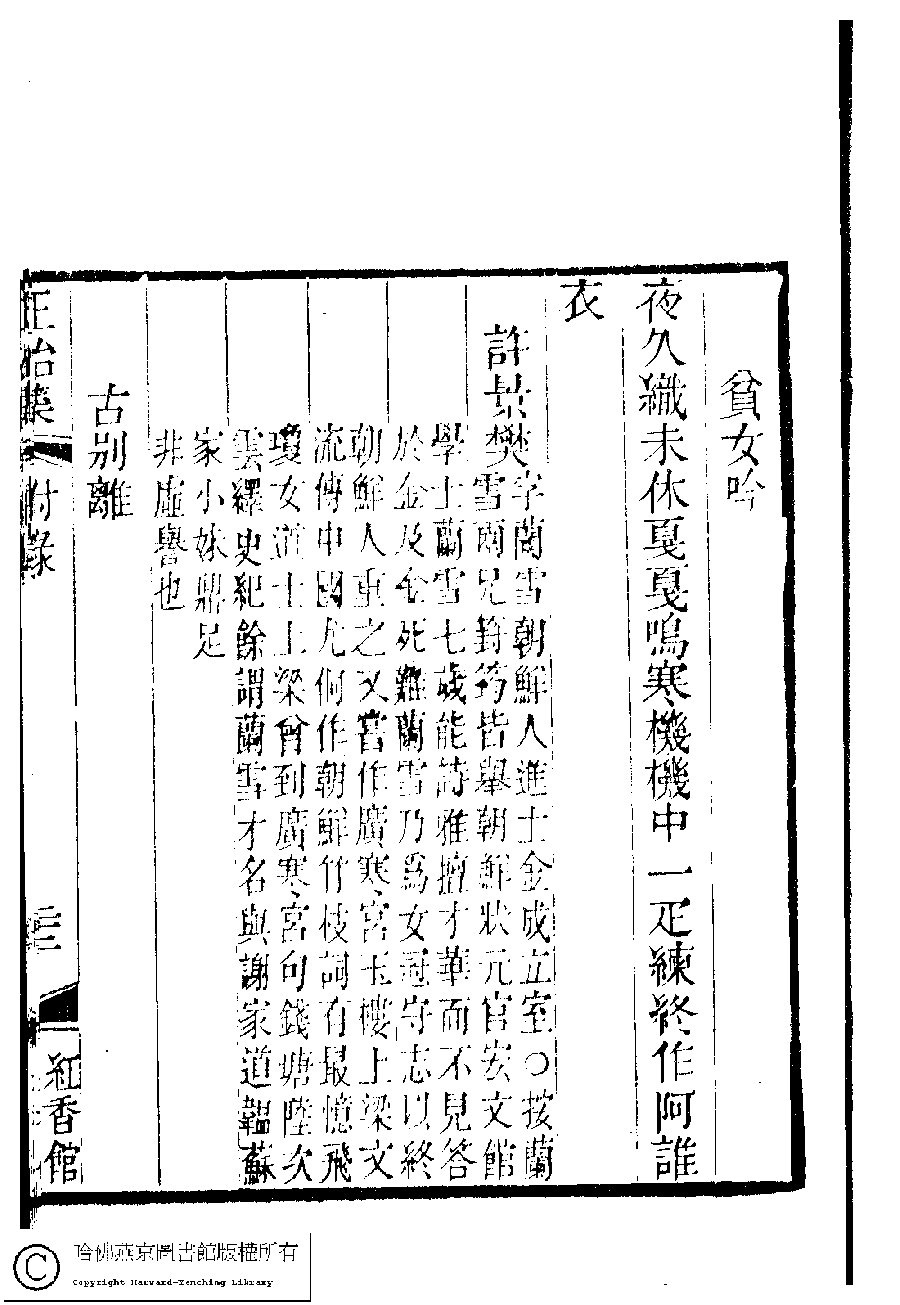 貧女吟
夜久織未休戛戛鳴寒機機中一疋練終作阿誰
衣
許景樊
字蘭雪朝鮮人進士金成立室○按蘭
雪兩兄篈筠皆舉朝鮮狀元官宏文館
學士蘭雪七歲能詩雅擅才華而不見答
於金及金死難蘭雪乃爲女冠守志以終
朝鮮人重之又嘗作廣寒宮玉樓上梁文
流傳中國尤侗作朝鮮竹枝詞有最憶飛
瓊女道士上梁曾到廣寒宮句錢塘陸次
雲繹史紀餘謂蘭雪才名與謝家道韞蘇
家小妹鼎足
非虛譽也
古別離
正始集 附錄 三 紅香館
哈佛燕京圖書館版權所有
Copyright Harvard-Yenching Library